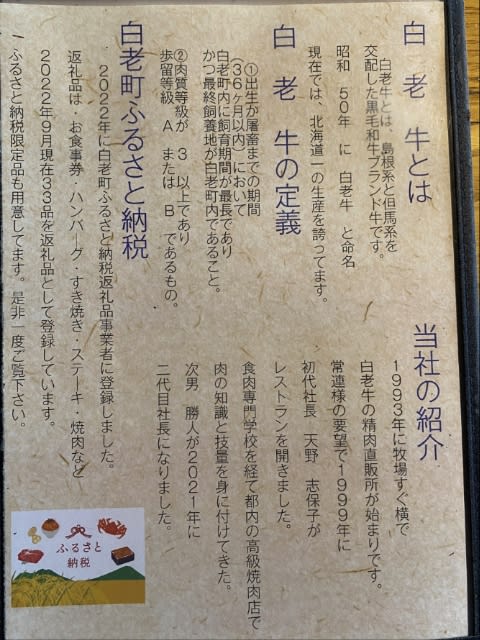 白老牛とは
白老牛とは、島根系と但馬系を
交配した黒毛和牛ブランド牛です。
昭和 50年 に 白老牛 と命名
現在では、北海道一の生産を誇ってます。
白老 牛の定義
①出生が屠畜までの期間
(36ヶ月以内)において
白老町内に飼育期間が最長であり
かつ最終飼養地が白老町内であること。
②肉質等級が 3 以上であり
歩留等級 A または B であるもの。
白老町ふるさと納税
2022年に白老町ふるさと納税返礼品事業者に登録しました。
返礼品は・お食事券・ハンバーグ・すき焼き・ステーキ・焼肉など
2022年9月現在33品を返礼品として登録しています。
ーふるさと納税限定品も用意してます。是非一度ご覧下さい。
当社の紹介
1993年に牧場すぐ横で
白老牛の精肉直販所が始まりです。
常連様の要望で1999年に
初代社長 天野 志保子が
レストランを開きました。
食肉専門学校を経て都内の高級焼肉店で
肉の知識と技量を身に付けてきた。
次男 勝人が2021年に
二代目社長になりました。
ふるさと
納税